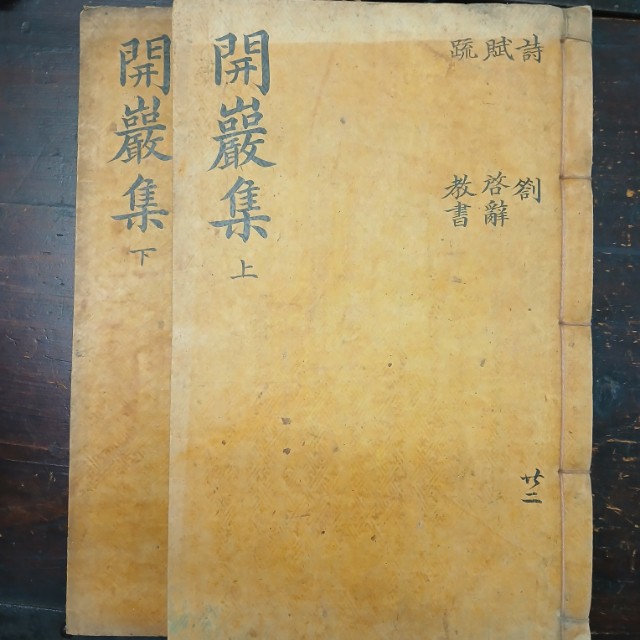 詩 劄
賦 啓辭
疏 教書
開巖集 上
開巖集 下
廿二